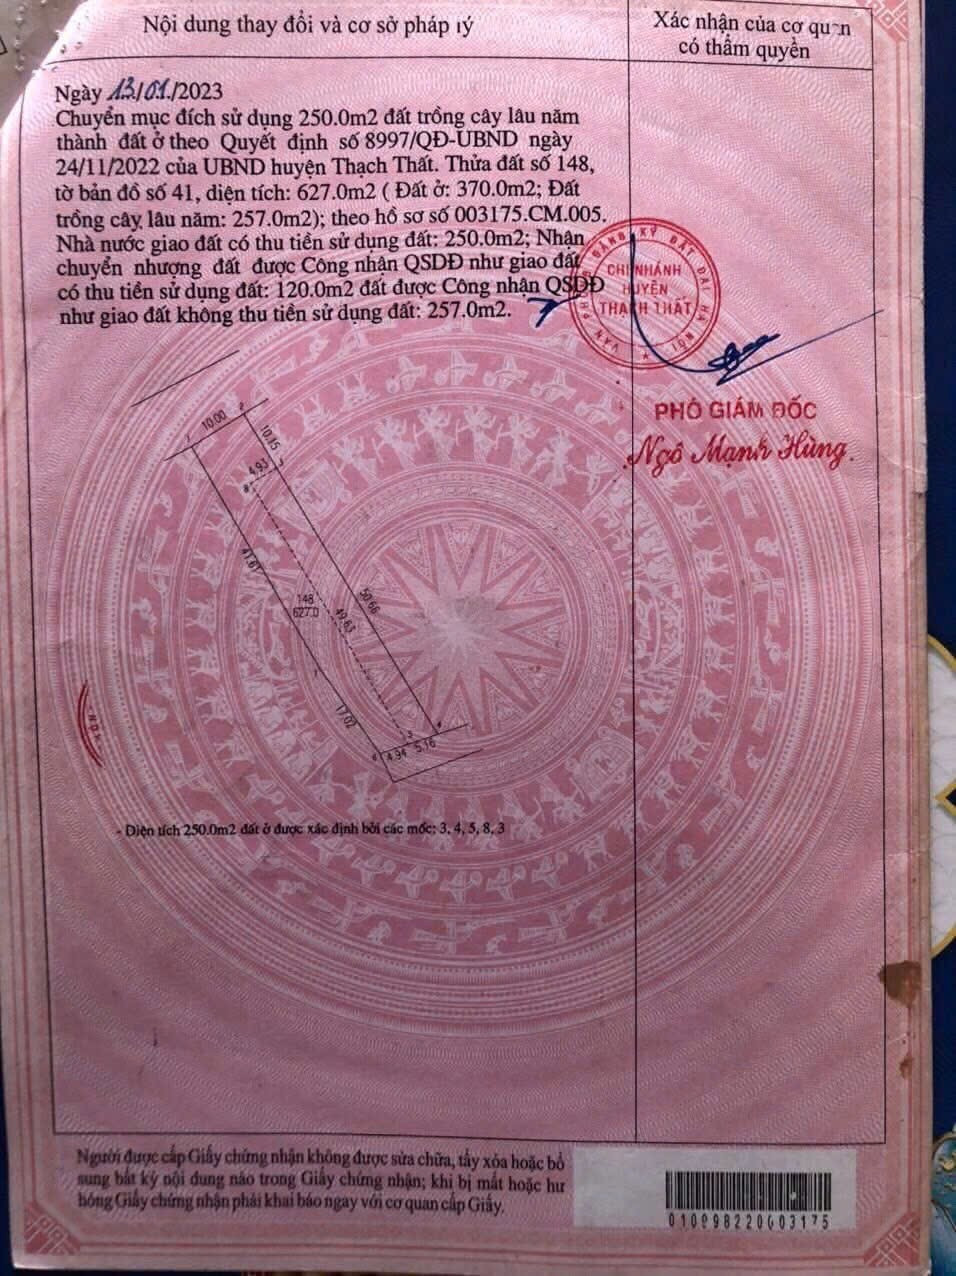 Nội dung thay đổi và cơ sở pháp lý
Xác nhận của cơ quan
có thẩm quyền
Ngày 13/01./2023
Chuyển mục đích sử dụng 250.0m2 đất trồng cây lâu năm
thành đất ở theo Quyết định số 8997/QĐ-UBND ngày
24/11/2022 của UBND huyện Thạch Thất. Thửa đất số 148,
tờ bản đồ số 41, diện tích: 627.0m2 ( Đất ở: 370.0m2; Đất
trồng cây lâu năm: 257.0m2); theo hồ sơ số 003175.CM.005.
Nhà nước giao đất có thu tiền sử dụng đất: 250.0m2; Nhận
chuyển nhượng đất được Công nhận QSDĐ như giao đất
có thu tiền sử dụng đất: 120.0m2 đất được Công nhận QSDĐ
như giao đất không thu tiền sử dụng đất: 257.0m2.
VĂN PHÒNG ĐĂNG KÝ ĐẤT ĐAI HÀ NỘI
CHI NHÁNH
HUYỆN
THẠCH THẤT
PHÓ GIÁM ĐỐC
Ngô Mạnh Hùng.
1
10.00
2
10.15
4.93
3
8
41.61
148
627.0
49.63
50.66
7
17.02
6
4.94
5
5.16
4
- Diện tích 250.0m2 đất ở được xác định bởi các mốc: 3, 4, 5, 8, 3
Người được cấp Giấy chứng nhận không được sửa chữa, tẩy xóa hoặc bổ
sung bất kỳ nội dung nào trong Giấy chứng nhận; khi bị mất hoặc hư
hỏng Giấy chứng nhận phải khai báo ngay với cơ quan cấp Giấy.
010098220003175